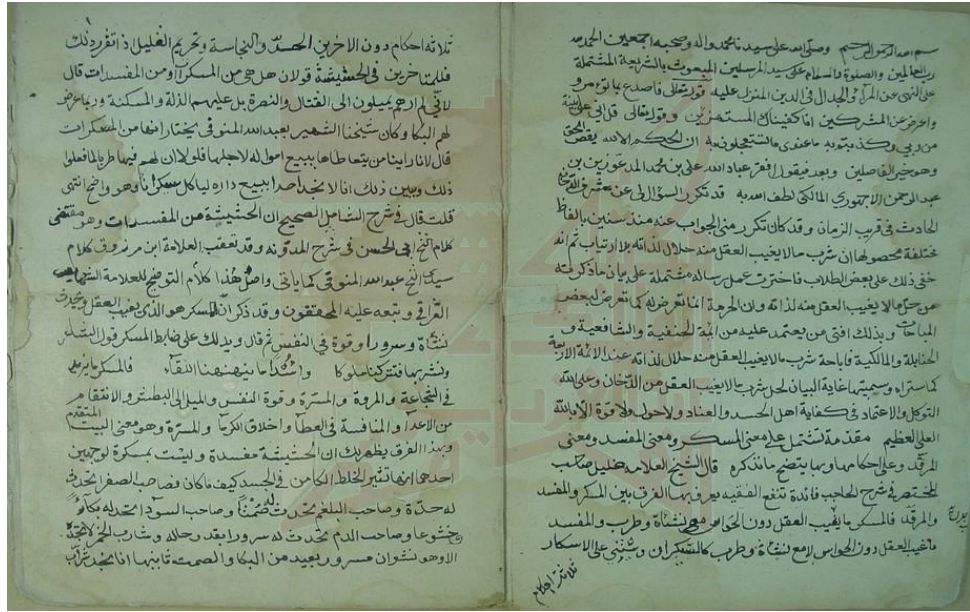 بسم الله الرحمن الرحيم وصلى الله على سيدنا محمد واله وصحبه اجمعين الحمد لله
رب العالمين والصلوة والسلام على سيد المرسلين المبعوث بالشريعة المشتملة
على النهي عن المرآء والجدال في الدين المنزل عليه قوله تعالى فاصدع بما تؤمر و
واعرض عن المشركين انا كفيناك المستهزئين وقوله تعالى قل اني على بينة
من ربي وكذبتم به ما عندي ما تستعجلون به ان الحكم الا لله يقص الحق
وهو خير الفاصلين وبعد فيقول افقر عباد الله علي بن محمد المدعو زين بن
عبد الرحمن الاجهوري المالكي لطف الله به قد تكرر السؤال لي عن شرب الدخان
الحادث في قريب الزمان وقد كان تكرر مني الجواب عنه منذ سنين بالفاظ
مختلفة محصولها ان شرب ما لا يغيب العقل منه حلال لذاته بلا ارتياب ثم انه
خفي ذلك على بعض الطلاب فاخترت عمل رسالة مشتملة على بيان ما ذكرته
من حل ما لا يغيب العقل منه لذاته وان الحرمة انما تعرض له كما تعرض لبعض
المباحات وبذلك افتى من يعتمد عليه من ائمة الحنفية والشافعية و
الحنابلة والمالكية فاباحة شرب ما لا يغيب العقل منه حلال لذاته عند الائمة الاربعة
كما ستراه وسميتها غاية البيان لحل شرب ما لا يغيب العقل من الدخان وعلى الله
التوكل والاعتماد في كفاية اهل الحسد والعناد ولا حول ولا قوة الا بالله
العلي العظيم مقدمة تشتمل على معنى المسكر ومعنى المفسد ومعنى
المرقد وعلى احكامها وبها يتضح ما نذكره قال الشيخ العلامه خليل صاحب
المختصر في شرح الحاجب فائدة تنفع الفقيه يعرف بها الفرق بين المسكر والمفسد
والمرقد فالمسكر ما يغيب العقل دون الحواس مع نشاة وطرب والمفسد
ما غيب العقل دون الحواس لا مع نشاة وطرب كالسيكران وينبني على الاسكار
ثلاثة احكام
ثلاثة احكام دون الاخرين الحد والنجاسة وتحريم القليل اذا تقرر ذلك
فللمتاخرين في الحشيشة قولان هل هي من المسكرات او من المفسدات قال
لاني لم ارهم يميلون الى القتال والنصرة بل عليهم الذلة والمسكنة وربما عرض
لهم البكا وكان شيخنا الشهير بعبد الله المنوفي يختار انها من المسكرات
قال لانا راينا من يتعاطاها يبيع امواله لاجلها فلولا ان لهم فيها طربا لما فعلوا
ذلك ويبين ذلك انا لا نجد احدا يبيع داره لياكل سكرانا وهو واضح انتهى
قلت قال في شرح الشامل الصحيح ان الحشيشة من المفسدات وهو مقتضى
كلام الشيخ ابي الحسن في شرح المدونه وقد تعقب العلامة ابن مرزوق كلام
سيدي الشيخ عبد الله المنوفي كما ياتي واصل هذا كلام التوضيح للعلامة الشهاب
القرافي وتبعه عليه المحققون وقد ذكر ان المسكر هو الذي يغيب العقل ويحدث
نشاة وسرورا وقوة في النفس ثم قال ويدلك على ضابط المسكر قول الشاعر
ونشربها فتتركنا ملوكا واسدا ما ينهنهنا اللقآء فالمسكر ما يزيد
في الشجاعة والمروة والمسرة وقوة النفس والميل الى البطش والانتقام
من الاعداء والمنافسة في العطاء واخلاق الكرماء والمسرة وهو معنى البيت المتقدم
وبهذا الفرق يظهر لك ان الحشيشة مفسدة وليست بمسكرة لوجهين
احدهما انها تثير الخلط الكامن في الجسد كيف ما كان فصاحب الصفرا تحدث
له حدة وصاحب البلغم تحدث له صمتا وصاحب السودا تحدث له بكآء
وخشوعا وصاحب الدم تحدث له سرورا بقدر حاله وشارب الخمر لا تجده
الا وهو نشوان مسرور بعيد من البكا والصمت ثانيها انا نجد شراب